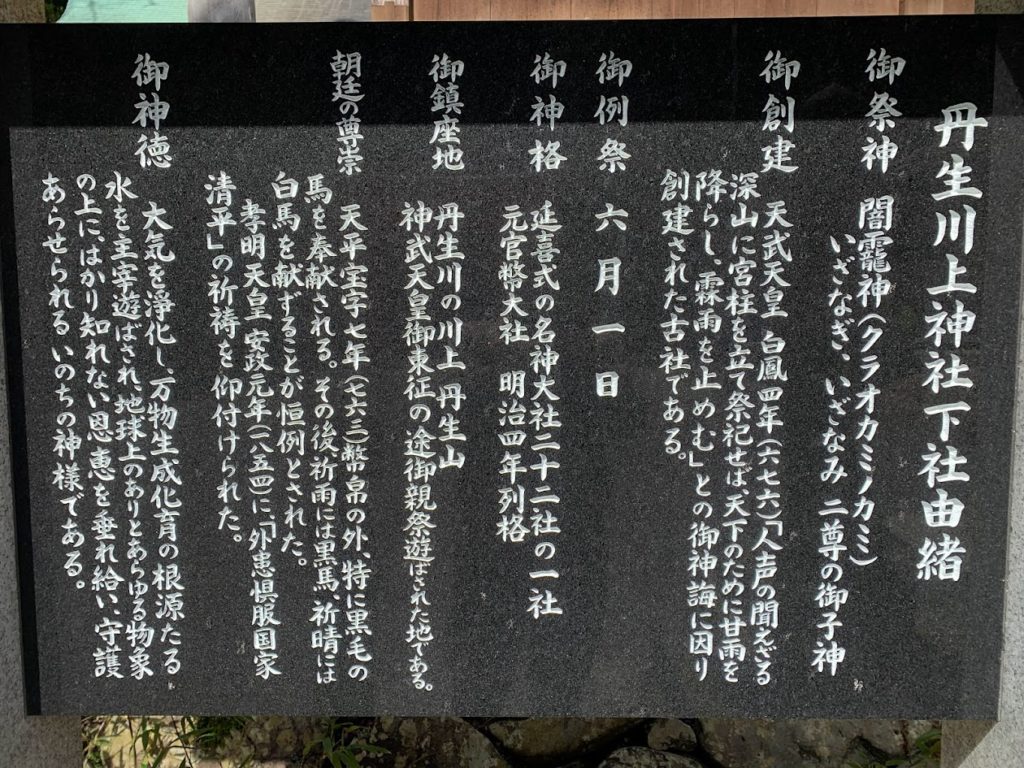 丹生川上神社下社由緒
御祭神　闇龗神（クラオカミノカミ）
いざなぎ、いざなみ　二尊の御子神
御創建　天武天皇　白鳳四年（六七六）「人声の聞えざる
深山に宮柱を立て祭祀せば、天下のために甘雨を
降らし、霖雨を止めむ」との御神誨に因り
創建された古社である。
御例祭　六月一日
御神格　延喜式の名神大社二十二社の一社
元官幣大社　明治四年列格
御鎮座地　丹生川の川上　丹生山
神武天皇御東征の途御親祭遊ばされた地である。
朝廷の尊崇　天平宝字七年（七六三）幣帛の外、特に黒毛の
馬を奉献される。その後祈雨には黒馬、祈晴には
白馬を献ずることが恒例とされた。
孝明天皇　安政元年（一八五四）に、「外患惧服国家
清平」の祈祷を仰付けられた。
御神徳　大気を淨化し、万物生成化育の根源たる
水を主宰遊ばされ、地球上のありとあらゆる物象
の上に、はかり知れない恩恵を垂れ給い、守護
あらせられる　いのちの神様である。